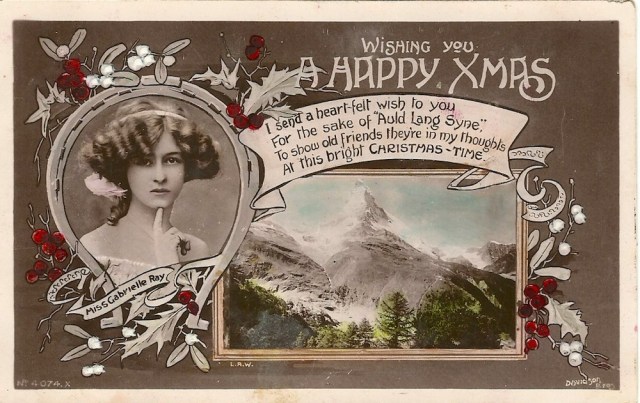 Wishing you
A HAPPY XMAS
I send a heart-felt wish to you
For the sake of "Auld Lang Syne",
To show old friends they're in my thoughts
At this bright CHRISTMAS-TIME.
Miss Gabrielle Ray
L.R.W.
Nº 4074.X
Davidson
Bros